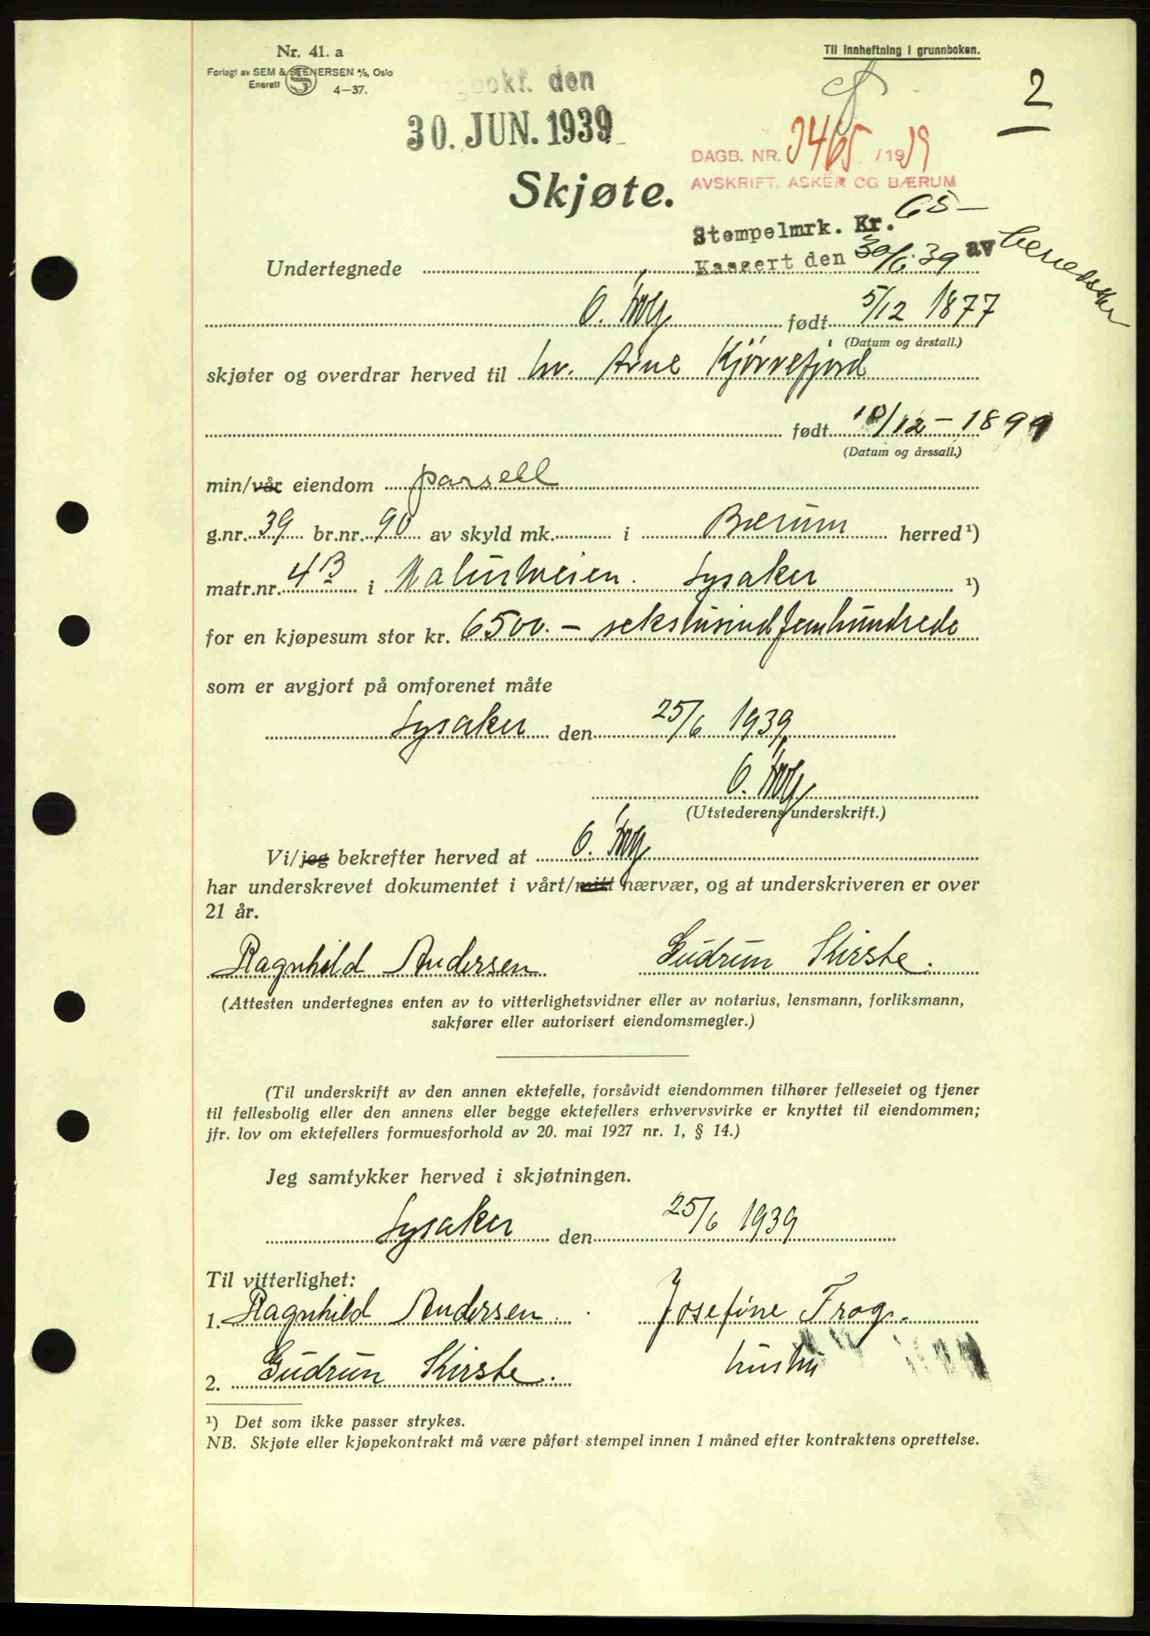 Nr. 41. a
Forlagt av SEM & STENERSEN A/S, Oslo
Enerett 4-37.
Til innheftning i grunnboken.
den
30. JUN. 1939
2
DAGB. NR. 3465 /1939
AVSKRIFT. ASKER OG BÆRUM
Skjøte.
Stempelmrk. Kr. 65-
Kassert den 30/6 39 av
Undertegnede
O. Frog født 5/12 1877
(Datum og årstall.)
skjøter og overdrar herved til hr. Arne Kjørrefjord
født 10/12 - 1899
(Datum og årssall.)
min/vår eiendom parsell
g.nr. 39 br.nr. 90 av skyld mk. i Bærum herred¹)
matr.nr. 4B i Lysaker ¹)
for en kjøpesum stor kr. 6500.- sekstusindfemhundrede
som er avgjort på omforenet måte
Lysaker den 25/6 1939
O. Frog
(Utstederens underskrift.)
Vi/jeg bekrefter herved at O. Frog
har underskrevet dokumentet i vårt/mitt nærvær, og at underskriveren er over
21 år.
Ragnhild Andersen Gudrun Kirste.
(Attesten undertegnes enten av to vitterlighetsvidner eller av notarius, lensmann, forliksmann,
sakfører eller autorisert eiendomsmegler.)
(Til underskrift av den annen ektefelle, forsåvidt eiendommen tilhører felleseiet og tjener
til fellesbolig eller den annens eller begge ektefellers erhvervsvirke er knyttet til eiendommen;
jfr. lov om ektefellers formuesforhold av 20. mai 1927 nr. 1, § 14.)
Jeg samtykker herved i skjøtningen.
Lysaker den 25/6 1939
Til vitterlighet:
1. Ragnhild Andersen. Josefine Frog.
2. Gudrun Kirste. hustru
¹) Det som ikke passer strykes.
NB. Skjøte eller kjøpekontrakt må være påført stempel innen 1 måned efter kontraktens oprettelse.